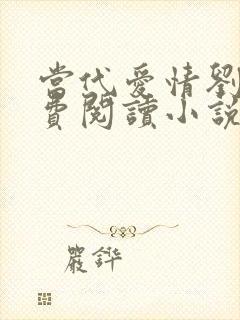 當代愛情劉
費閱讀小說
嚴鏵